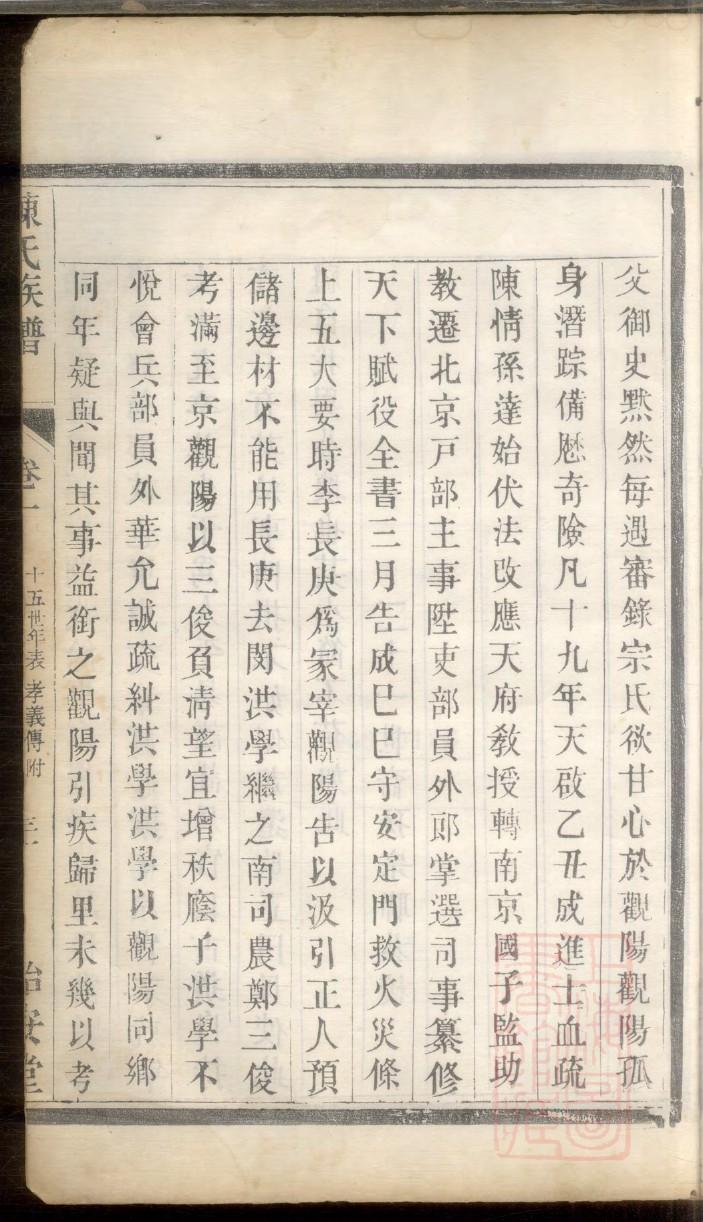 父御史黙然每遇審錄宗氏欲甘心於觀陽觀陽孤
身潛踪備歷奇險凡十九年天啟乙丑成進士血疏
陳情孫達始伏法改應天府敎授轉南京國子監助
教遷北京戸部主事陞吏部員外郎掌選司事纂修
天下賦役全書三月告成巳巳守安定門救火災條
上五大要時李長庚爲冢宰觀陽告以汲引正人預
儲邊材不能用長庚去閔洪學繼之南司農鄭三俊
考滿至京觀陽以三俊負淸望宜增秩廕子洪學不
悅會兵部員外華允誠疏糾洪學洪學以觀陽同鄉
同年疑與聞其事益銜之觀陽引疾歸里未幾以考
陳氏族譜
卷一
十五世年表 孝義傳附
治安堂